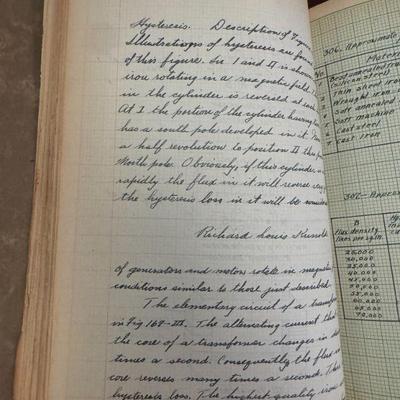 Hysteresis. Description of Figure
Illustrations of hysteresis are found
of this figure. In I and II is shown
iron rotating in a magnetic field. T
in the cylinder is reversed at each
At I the portion of the cylinder having
has a south pole developed in it.
a half revolution to position II this
North pole. Obviously, if this cylinder
rapidly the flux in it will reverse very
the hysteresis loss in it will be
Richard Louis
of generators and motors rotate in magnetic
conditions similar to those just described
The elementary circuit of a transfor
in Fig 167-III. The alternating current that
the core of a transformer changes in
times a second. Consequently the flux
core reverses many times a second.
hysteresis loss. The highest quality, iron
306. Approximate
Material
Best annealed tran
(silicon steel)
2 Thin sheet iron
3 Wrought iron
4 Soft annealed
5 Cast machine
6 Cast steel
7 Cast iron
307. Approx
B
Flux density
lines per sq. in.
25,000
30,000
35,000
40,000
45,000
50,000
55,000
60,000
65,000
70,000